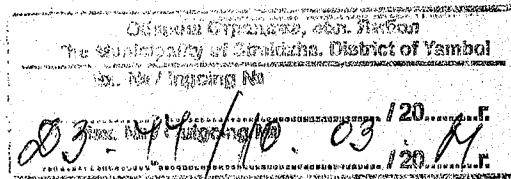 Община Стралджа, обл. Ямбол
The Municipality of Straldzha, District of Yambol
Вх. № / Ingoing №
/ 20 г.
Изх. № / Outgoing №
ДЗ-44/10.03. / 20 г.